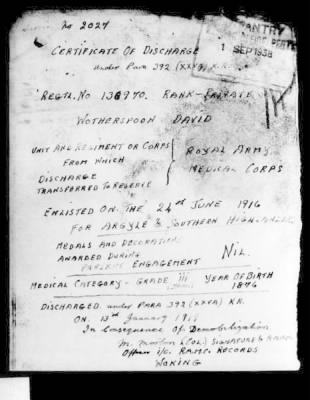 No 2027
CERTIFICATE OF DISCHARGE
under PARA 392 (XXVa) K.R.
1 SEP 1938
REGTL. No 136970. RANK - PRIVATE
WOTHERSPOON DAVID
UNIT AND REGIMENT OR CORPS
FROM WHICH
DISCHARGE
TRANSFERRED TO RESERVE
ROYAL ARMY
MEDICAL CORPS
ENLISTED ON THE 24st JUNE 1916
FOR ARGYLE & SOUTHERN HIGHLANDERS
MEDALS AND DECORATION
AWARDED DURING
PRESENT ENGAGEMENT
NIL.
MEDICAL CATEGORY - GRADE III YEAR OF BIRTH
1876
DISCHARGED under PARA 392 (XXVa) K.R.
ON 13th January
In Consequence Of Demobilization
M. Morton (COL) SIGNATURE & RANK
Officer i/c. R.A.M.C. RECORDS
WOKING